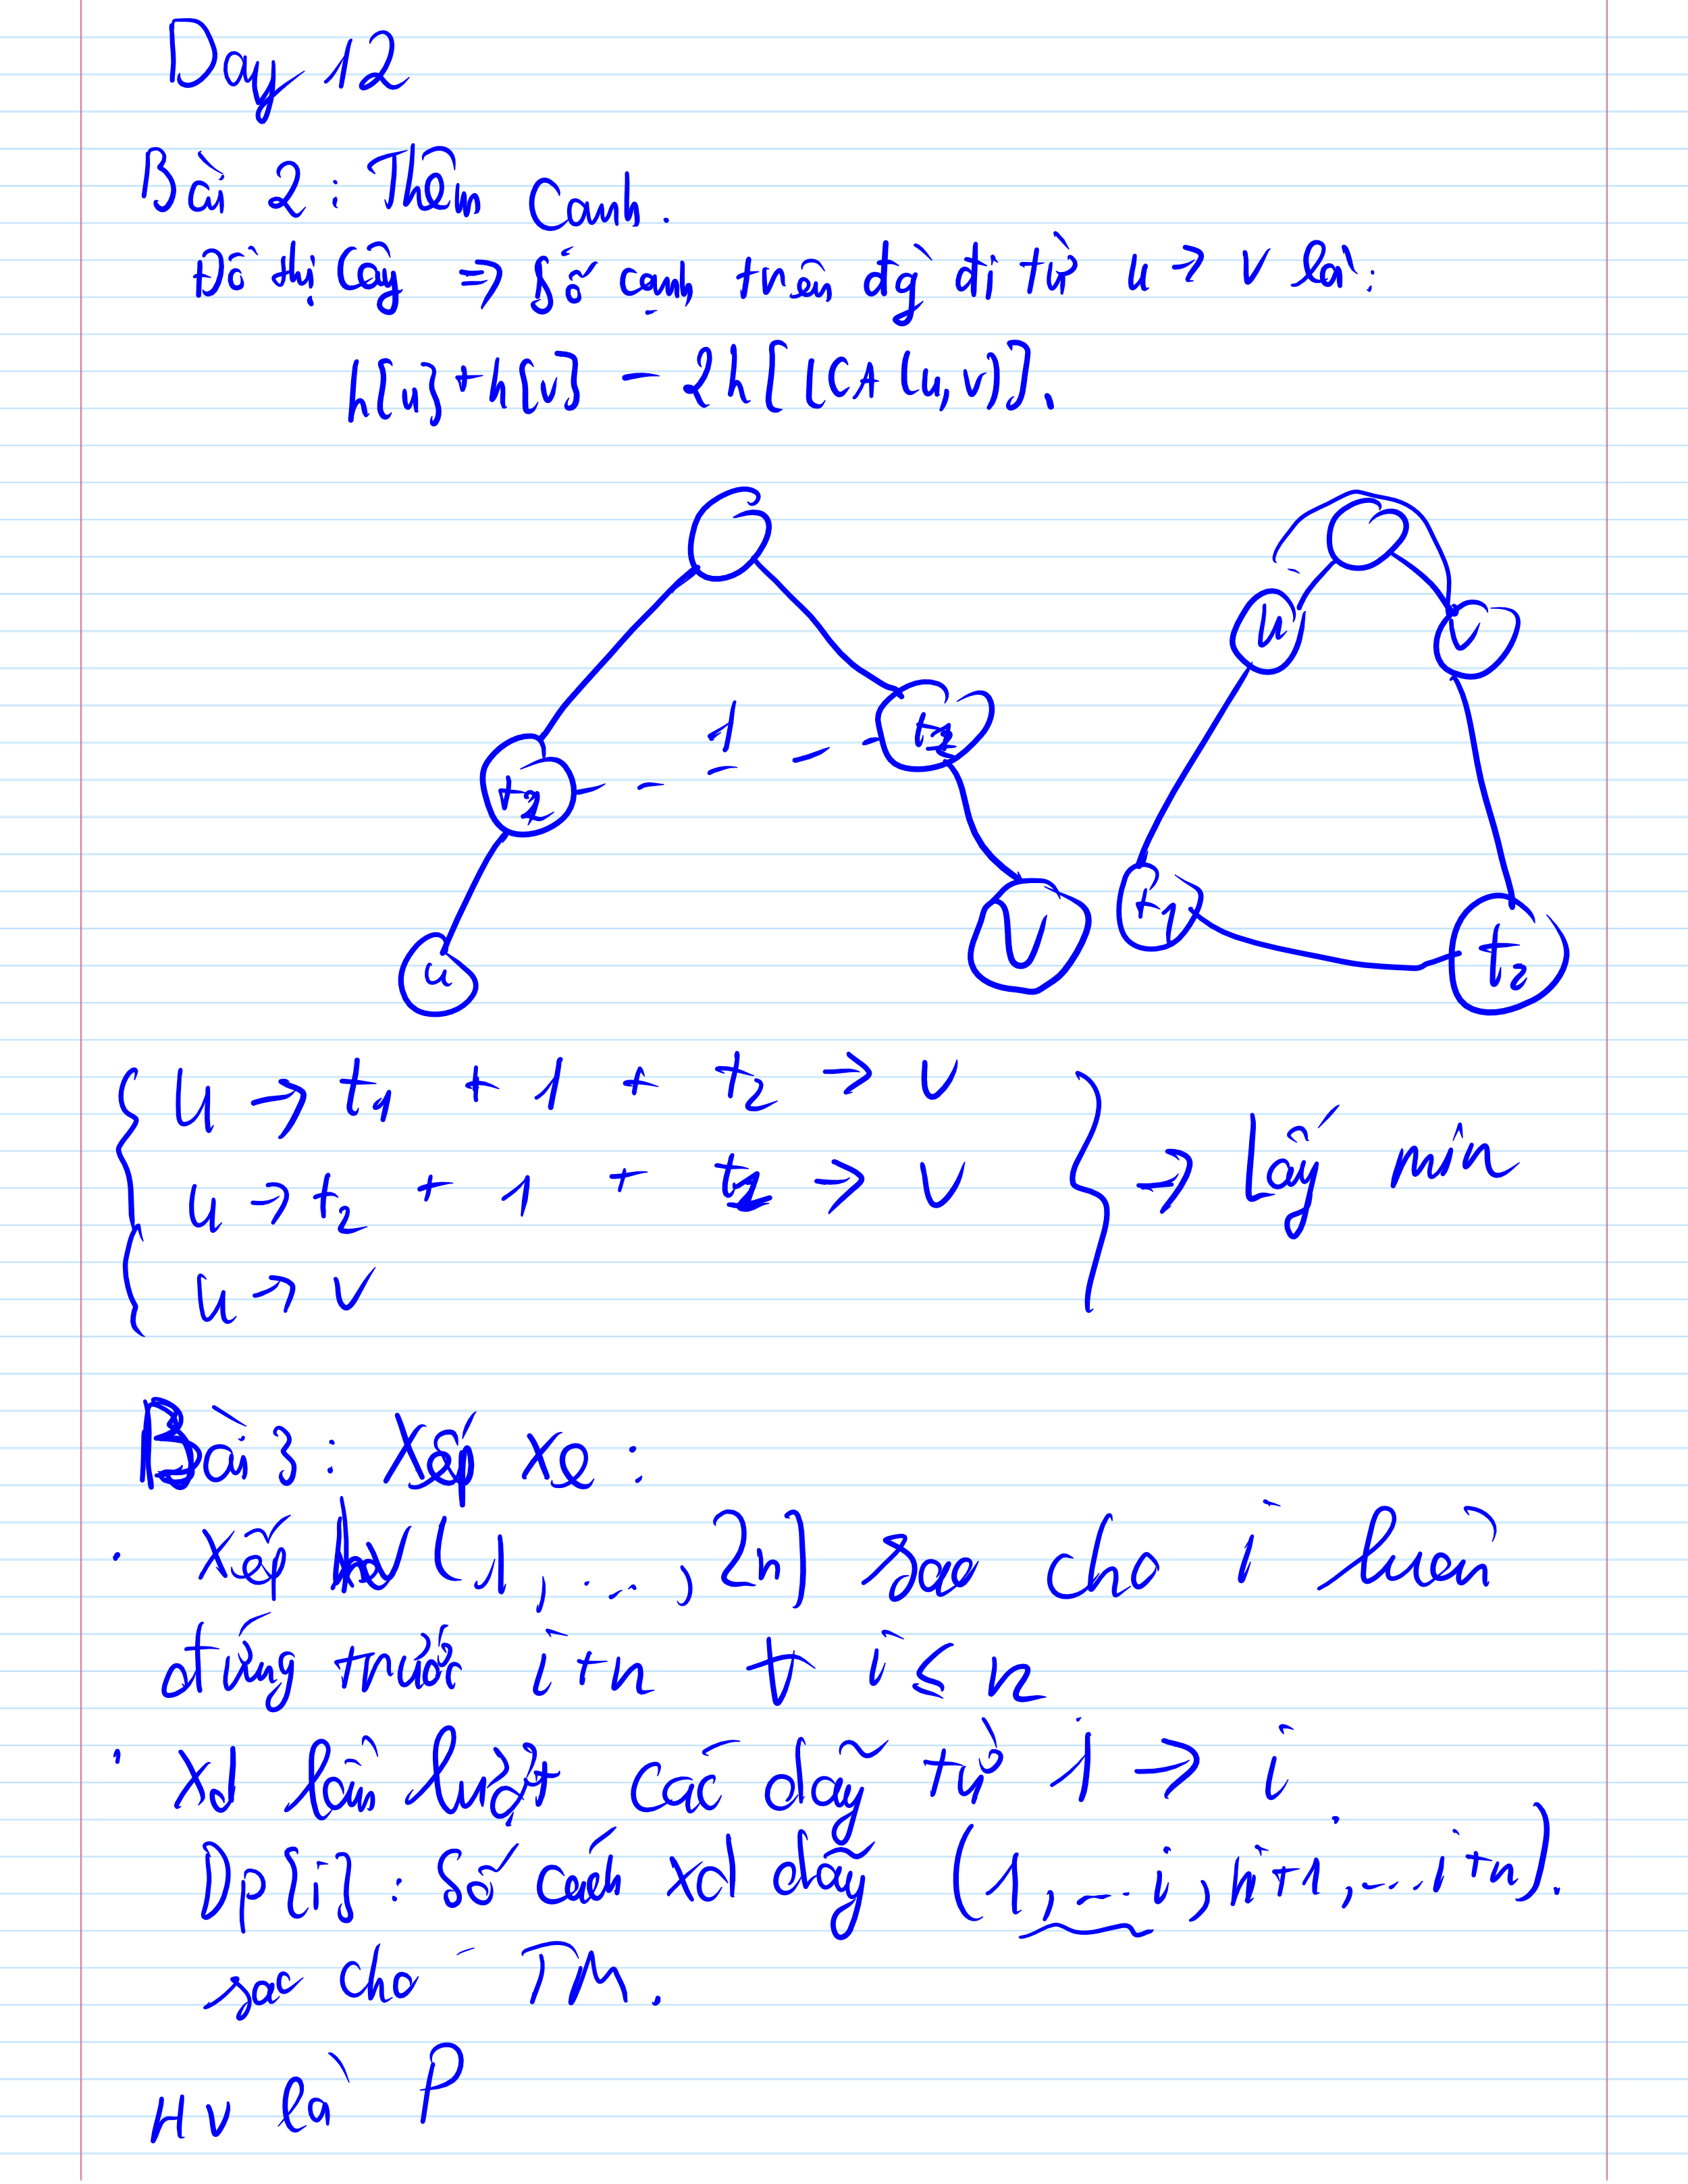 Day 12
Bài 2: Thêm Cạnh.
Đồ thị Cây => Số cạnh trên đg đi từ u -> v là:
h[u] + h[v] - 2h[LCA(u,v)].
u v
1
t1 t2
t1 t2
u v
u -> t1 + 1 + t2 -> v
u -> t2 + 1 + t1 -> v => lấy min
u -> v
Bài 3: Xếp xe:
. xếp hv (1, ..., 2n) sao cho i luôn
đứng trước i+n ∀ i ≤ n
. Xd lần lượt các dãy từ 1 -> i
Dp[i]: Số cách xd dãy (1, ... i, n+1, ... i+n).
sao cho TM.
HV là P